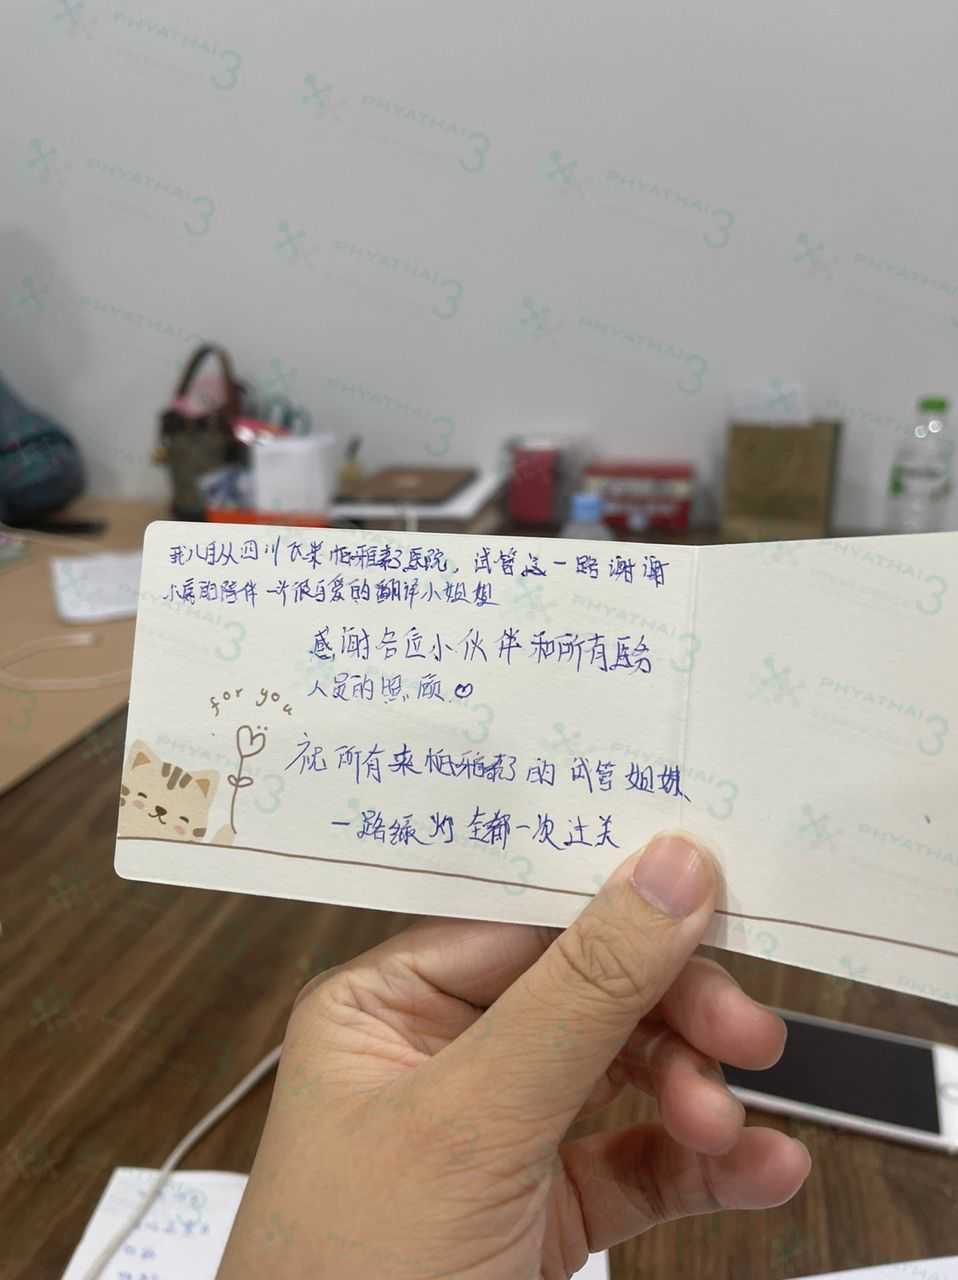 我八月从四川飞来帕亚泰3医院，试管这一路谢谢
的陪伴 很可爱的翻译小姐姐
感谢各位小伙伴和所有医务
人员的照顾♡
for you
祝所有来帕亚泰3的试管姐妹
一路绿灯 全都一次过关
PHYATHAI 3